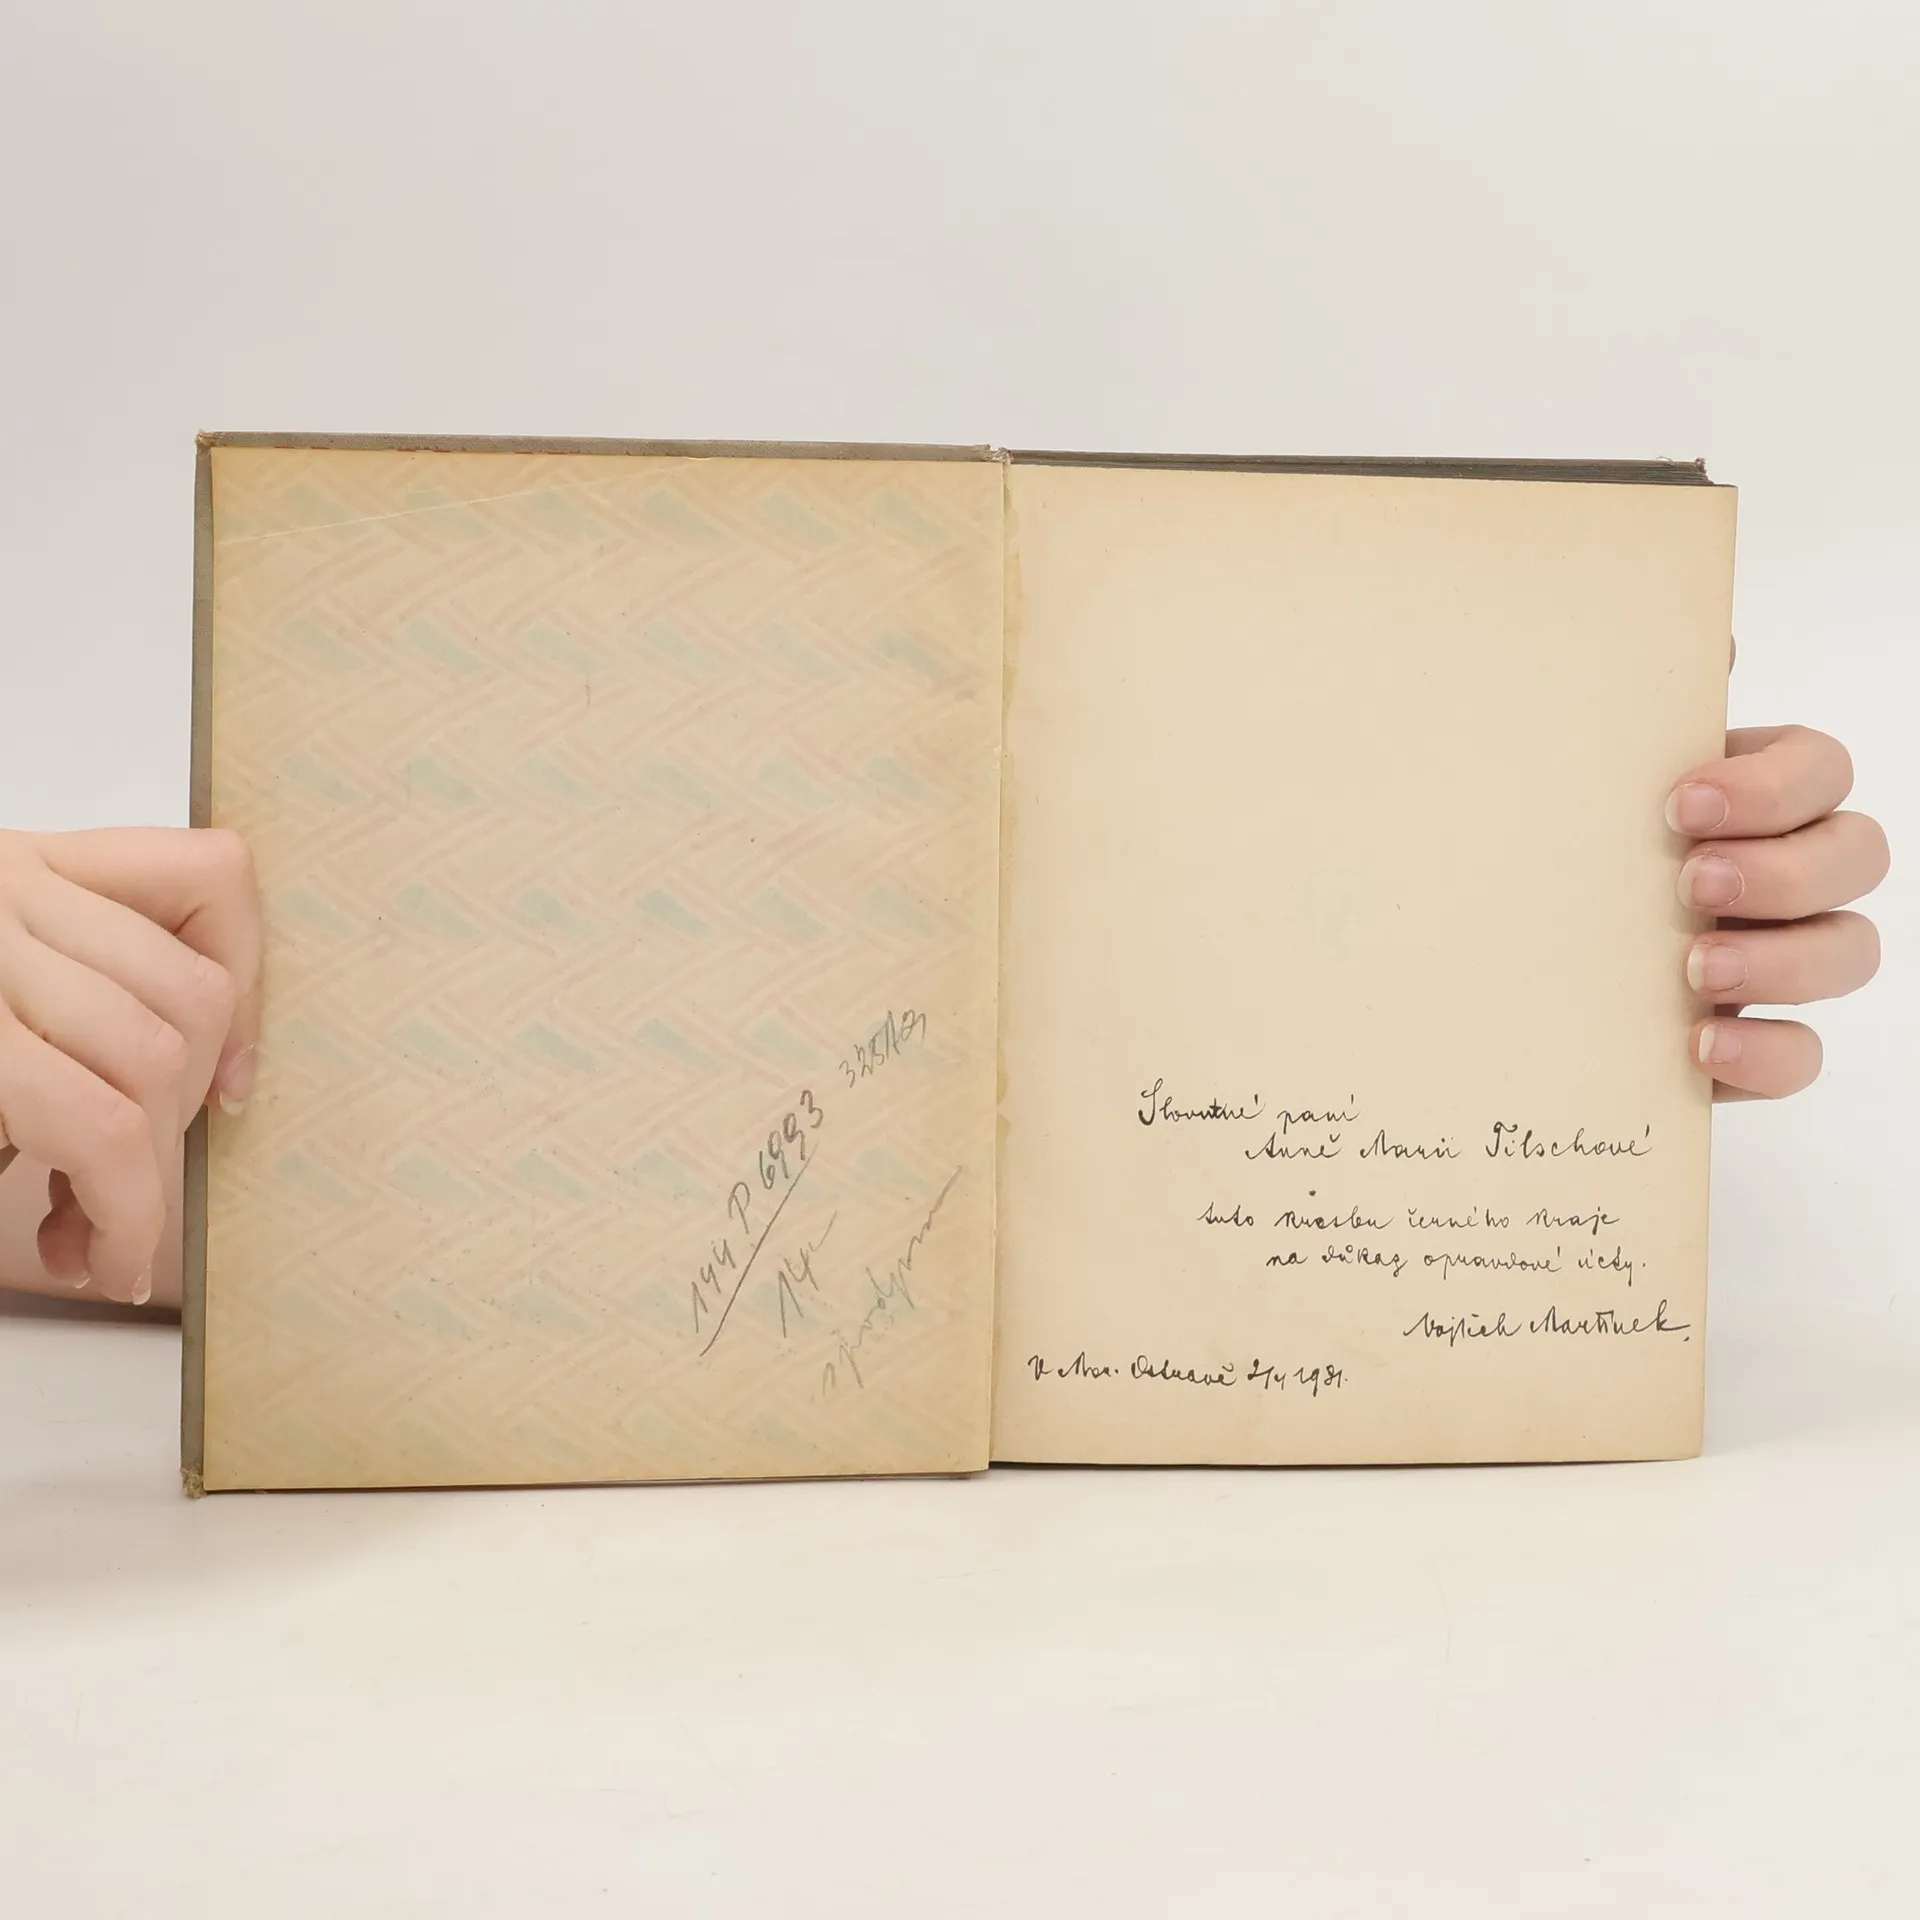 325Kčs
144 P 6993
14,-
s podpisem
Slovutné paní
Anně Marii Tilschové
tuto kresbu černého kraje
na důkaz opravdové úcty.
Vojtěch Martínek.
V Mor. Ostravě 2/4 1931.